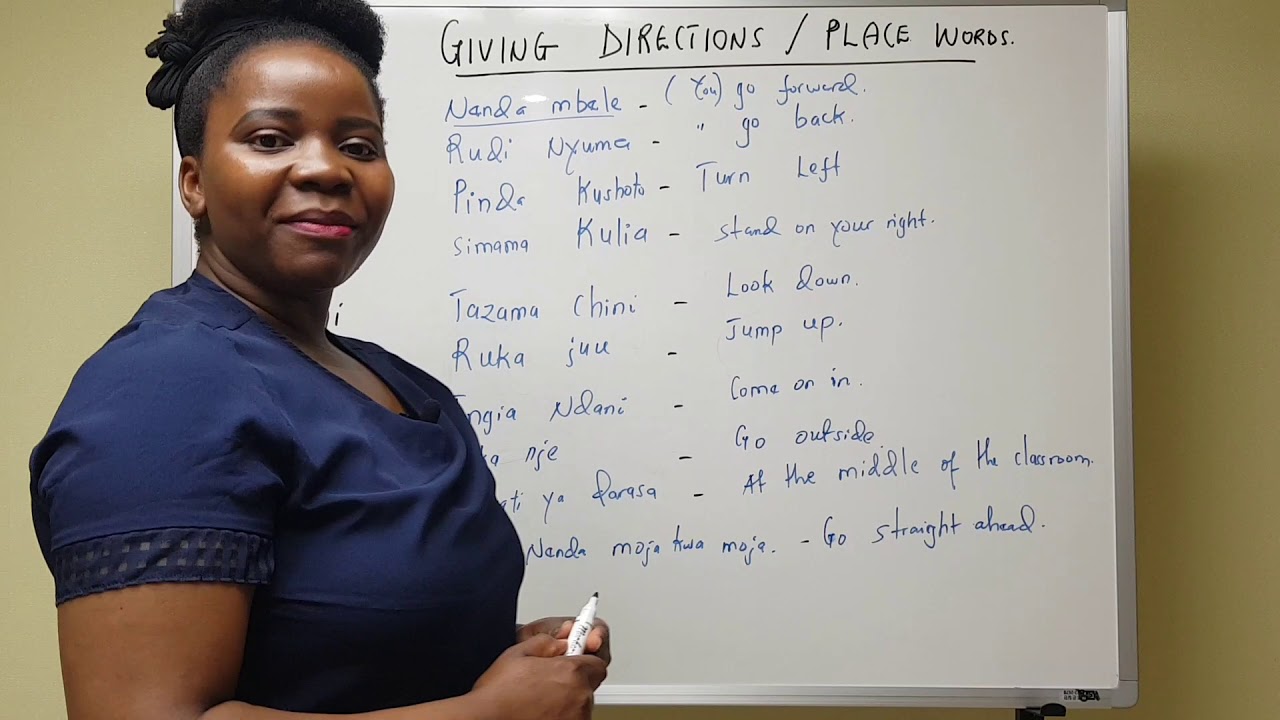 GIVING DIRECTIONS / PLACE WORDS.
Nanda mbele - (You) go forward.
Rudi Nyuma - " go back.
Pinda Kushoto - Turn Left
Simama Kulia - stand on your right.
Tazama Chini - Look down.
Ruka juu - Jump up.
Ndani - Come on in.
nje - Go outside.
ya darasa - At the middle of the classroom.
Nanda moja kwa moja. - Go straight ahead.